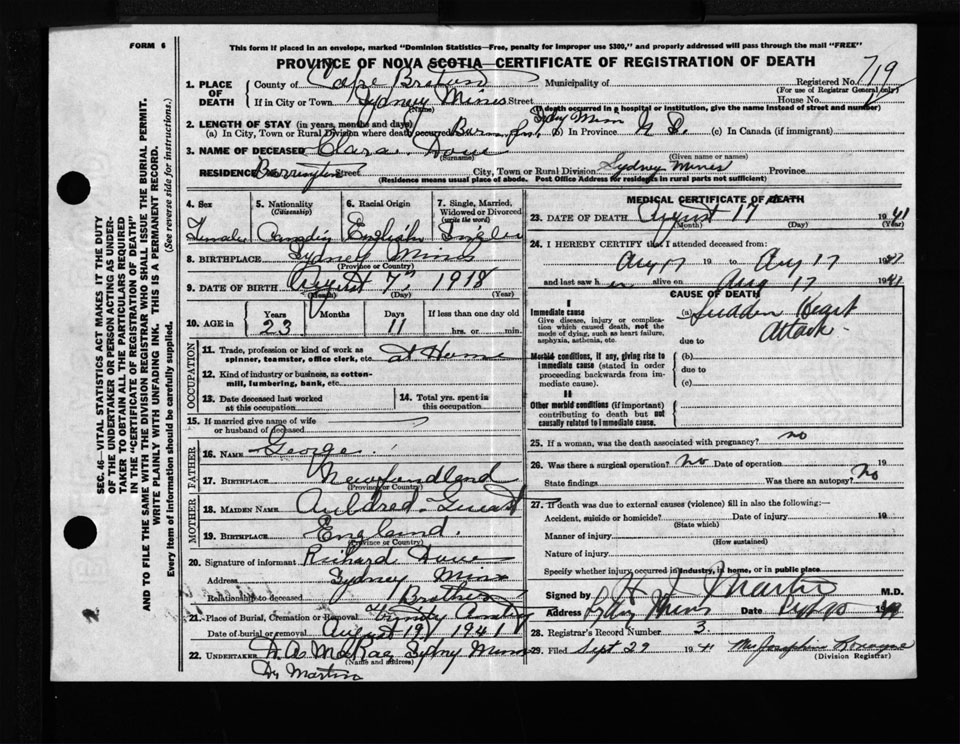 FORM 6
This form if placed in an envelope, marked "Dominion Statistics—Free, penalty for improper use $300," and properly addressed will pass through the mail "FREE"
PROVINCE OF NOVA SCOTIA—CERTIFICATE OF REGISTRATION OF DEATH
SEC. 46—VITAL STATISTICS ACT MAKES IT THE DUTY
OF THE UNDERTAKER OR PERSON ACTING AS UNDER-
TAKER TO OBTAIN ALL THE PARTICULARS REQUIRED
IN THE "CERTIFICATE OF REGISTRATION OF DEATH"
AND TO FILE THE SAME WITH THE DIVISION REGISTRAR WHO SHALL ISSUE THE BURIAL PERMIT.
WRITE PLAINLY WITH UNFADING INK. THIS IS A PERMANENT RECORD.
Every item of information should be carefully supplied. (See reverse side for instructions.)
1. PLACE OF DEATH
County of Cape Breton Municipality of Registered No. 719
(For use of Registrar General only)
If in City or Town Sydney Mines Street House No.
(Name) (If death occurred in a hospital or institution, give the name instead of street and number)
2. LENGTH OF STAY (in years, months and days) Sydney Mines
(a) In City, Town or Rural Division where death occurred (b) In Province N S. (c) In Canada (if immigrant)
3. NAME OF DECEASED Clara
(Surname) (Given name or names)
RESIDENCE Street City, Town or Rural Division Sydney Mines Province
(Residence means usual place of abode. Post Office Address for residents in rural parts not sufficient)
4. Sex Female
5. Nationality (Citizenship) Canadian
6. Racial Origin English
7. Single, Married, Widowed or Divorced (write the word) Single
8. BIRTHPLACE Sydney Mines
(Province or Country)
9. DATE OF BIRTH August 7, 1918
(Month) (Day) (Year)
10. AGE in Years 23 Months Days 11 If less than one day old hrs. or min.
OCCUPATION
11. Trade, profession or kind of work as spinner, teamster, office clerk, etc. at Home
12. Kind of industry or business, as cotton-mill, lumbering, bank, etc.
13. Date deceased last worked at this occupation
14. Total yrs. spent in this occupation
15. If married give name of wife or husband of deceased
FATHER
16. NAME George
17. BIRTHPLACE Newfoundland
(Province or Country)
MOTHER
18. MAIDEN NAME
19. BIRTHPLACE England.
(Province or Country)
20. Signature of informant Richard
Address Sydney Mines
Relationship to deceased Brother
21. Place of Burial, Cremation or Removal Trinity
Date of burial or removal August 19, 1941
22. UNDERTAKER A. McRae Sydney Mines
(Name and address)
Dr Martin
MEDICAL CERTIFICATE OF DEATH
23. DATE OF DEATH August 17 1941
(Month) (Day) (Year)
24. I HEREBY CERTIFY that I attended deceased from:
Aug 17 19 to Aug 17 19
and last saw h er alive on Aug 17 1941
CAUSE OF DEATH
I
Immediate cause
Give disease, injury or complication which caused death, not the mode of dying, such as heart failure, asphyxia, asthenia, etc.
(a) Sudden Heart Attack
due to
Morbid conditions, if any, giving rise to immediate cause (stated in order proceeding backwards from immediate cause).
(b)
due to
(c)
II
Other morbid conditions (if important) contributing to death but not causally related to immediate cause.
25. If a woman, was the death associated with pregnancy? no
26. Was there a surgical operation? No Date of operation 19
State findings Was there an autopsy? No
27. If death was due to external causes (violence) fill in also the following:—
Accident, suicide or homicide? Date of injury 19
(State which)
Manner of injury
(How sustained)
Nature of injury
Specify whether injury occurred in industry, in home, or in public place
Signed by Martin M.D.
Address Syd Mines Date 19
28. Registrar's Record Number 3.
29. Filed Sept 29 1941
(Division Registrar)